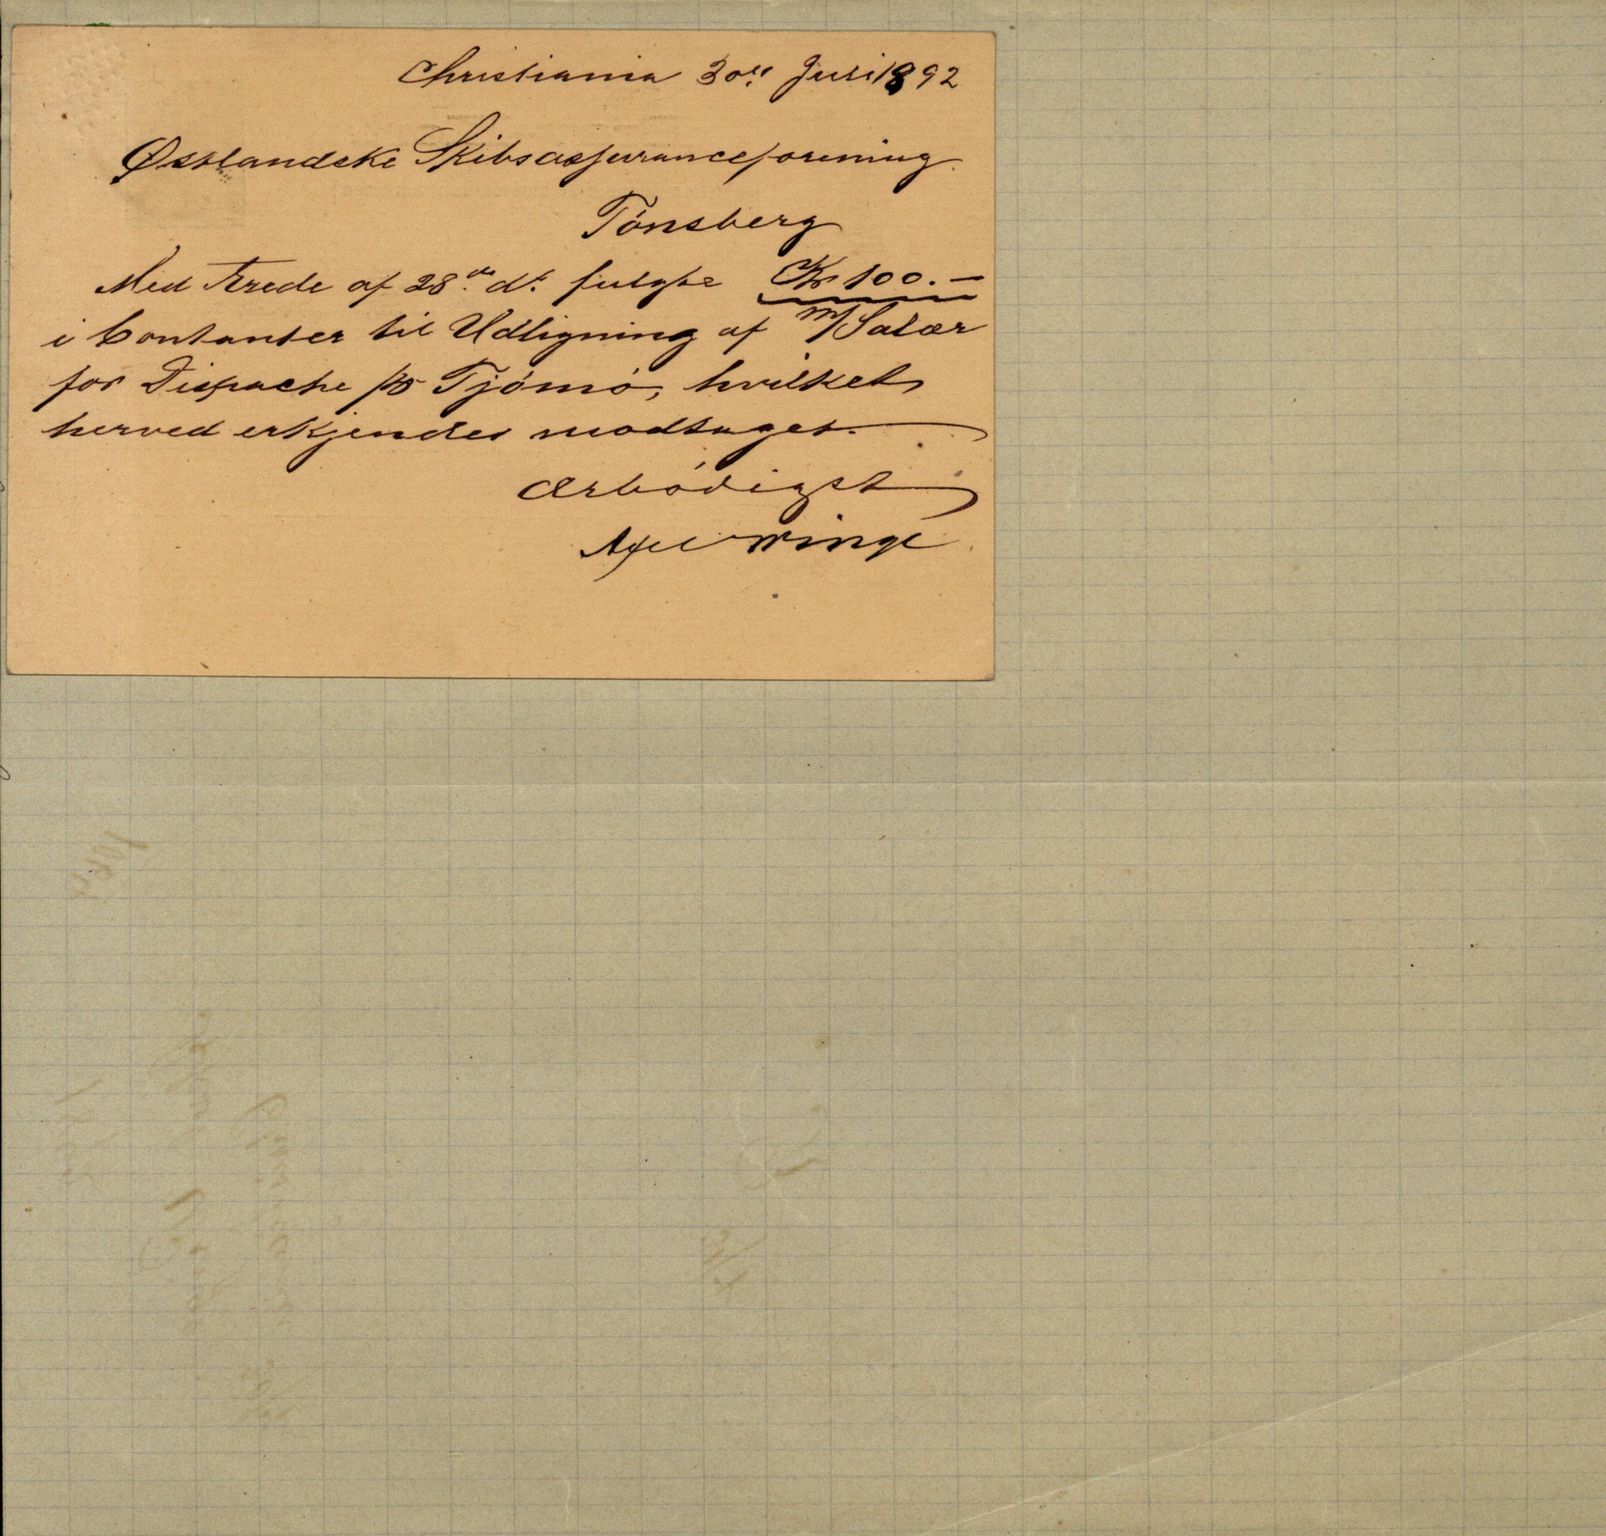 Christiania 30te Juli 1892
Østlandske Skibsassuranceforening
Tönsberg
Med Ærede af 28de ds. fulgte Kr 100.—
i Contanter til Udligning af m/Salær
for Dispache pr Tjömö, hvilket
herved erkjendes modtaget.
Ærbödigst
Axel Winge